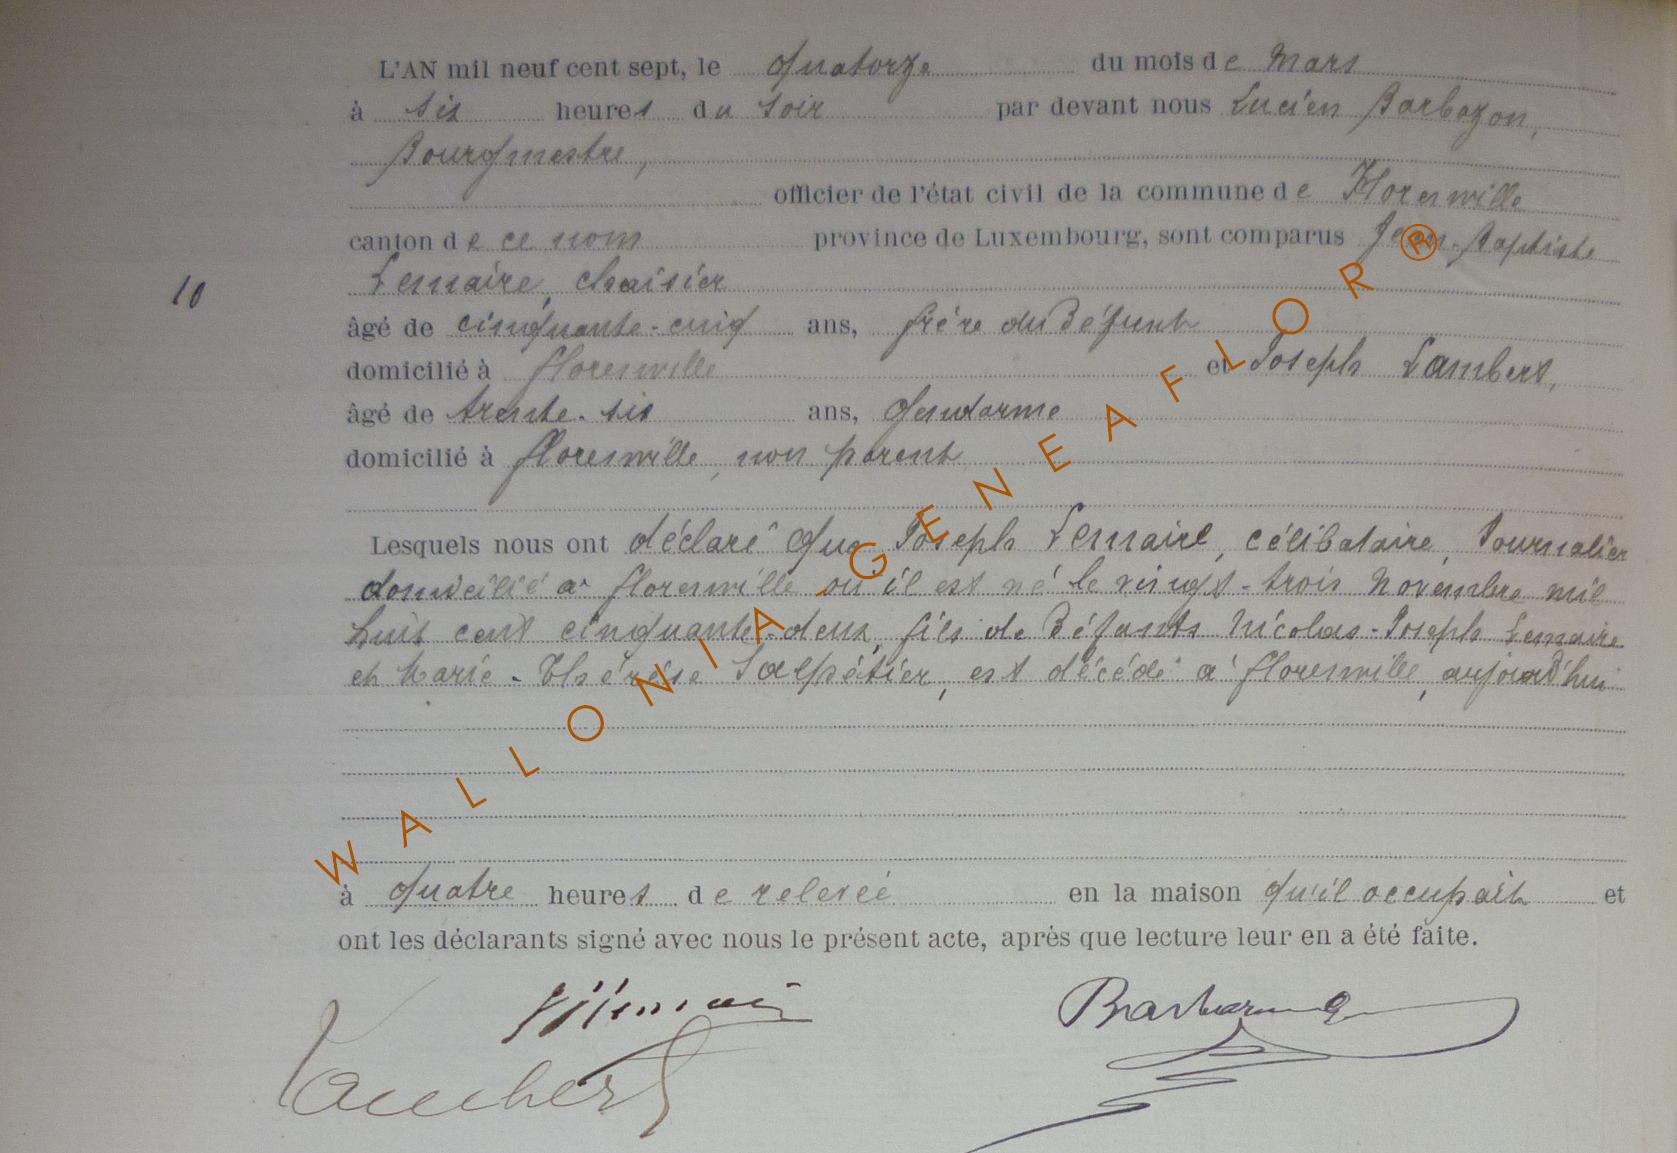 L'AN mil neuf cent sept, le quatorze du mois de Mars
à six heures du soir par devant nous Lucien Barbazon,
Bourgmestre,
officier de l'état civil de la commune de Florenville
canton de ce nom province de Luxembourg, sont comparus Jean-Baptiste
10 Lemaire, chaisier
âgé de cinquante-cinq ans, frère du Défunt
domicilié à florenville et Joseph Lambert,
âgé de trente-six ans, Gendarme
domicilié à florenville, non parent
Lesquels nous ont déclaré que Joseph Lemaire, célibataire, Journalier
domicilié à florenville où il est né le vingt-trois Novembre mil
huit cent cinquante-deux, fils de Défunts Nicolas-Joseph Lemaire
et Marie-Thérèse Salpétier, est décédé à florenville, aujourd'hui
à quatre heures de relevée en la maison qu'il occupait et
ont les déclarants signé avec nous le présent acte, après que lecture leur en a été faite.
Lambert
WALLONIA GENEAFLOR ®